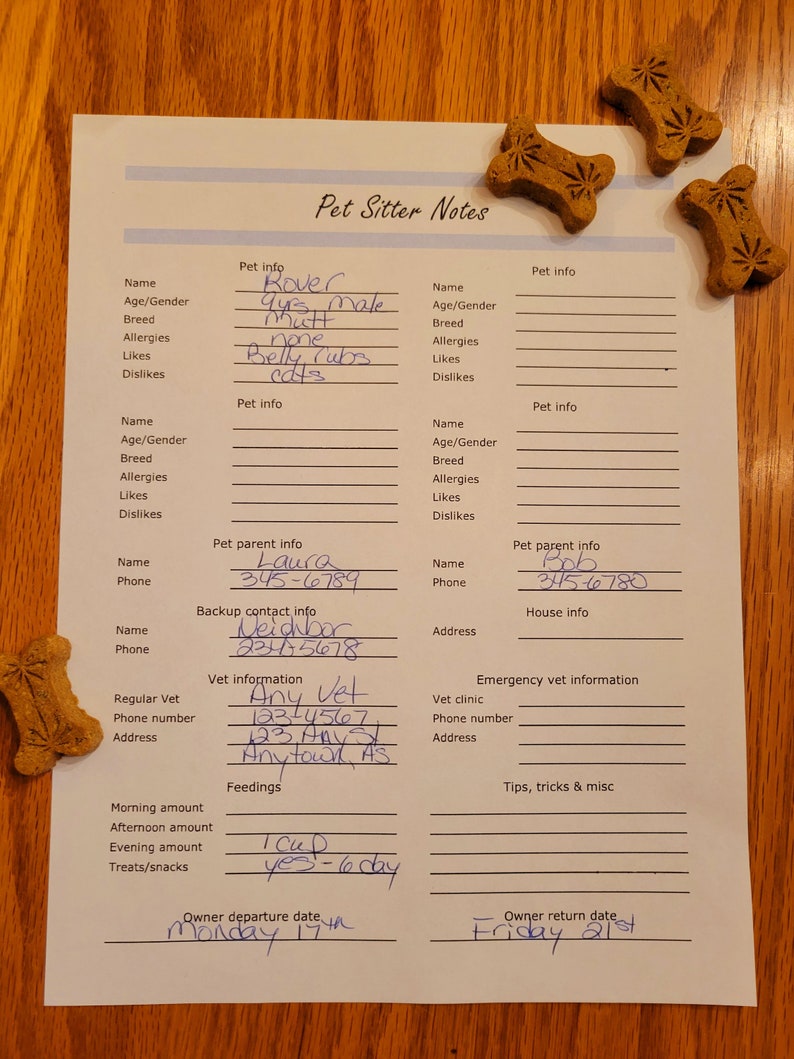 Pet Sitter Notes
Pet info
Name Rover
Age/Gender 9yrs male
Breed Mutt
Allergies none
Likes Belly rubs
Dislikes cats
Pet info
Name
Age/Gender
Breed
Allergies
Likes
Dislikes
Pet info
Name
Age/Gender
Breed
Allergies
Likes
Dislikes
Pet info
Name
Age/Gender
Breed
Allergies
Likes
Dislikes
Pet parent info
Name Laura
Phone 345-6789
Pet parent info
Name Bob
Phone 345-6780
Backup contact info
Name Neighbor
Phone 234-5678
House info
Address
Vet information
Regular Vet Any Vet
Phone number 123-4567
Address 123 Any St
Anytown, AS
Emergency vet information
Vet clinic
Phone number
Address
Feedings
Morning amount
Afternoon amount
Evening amount 1 cup
Treats/snacks yes - 6 day
Tips, tricks & misc
Owner departure date
Monday 17th
Owner return date
Friday 21st